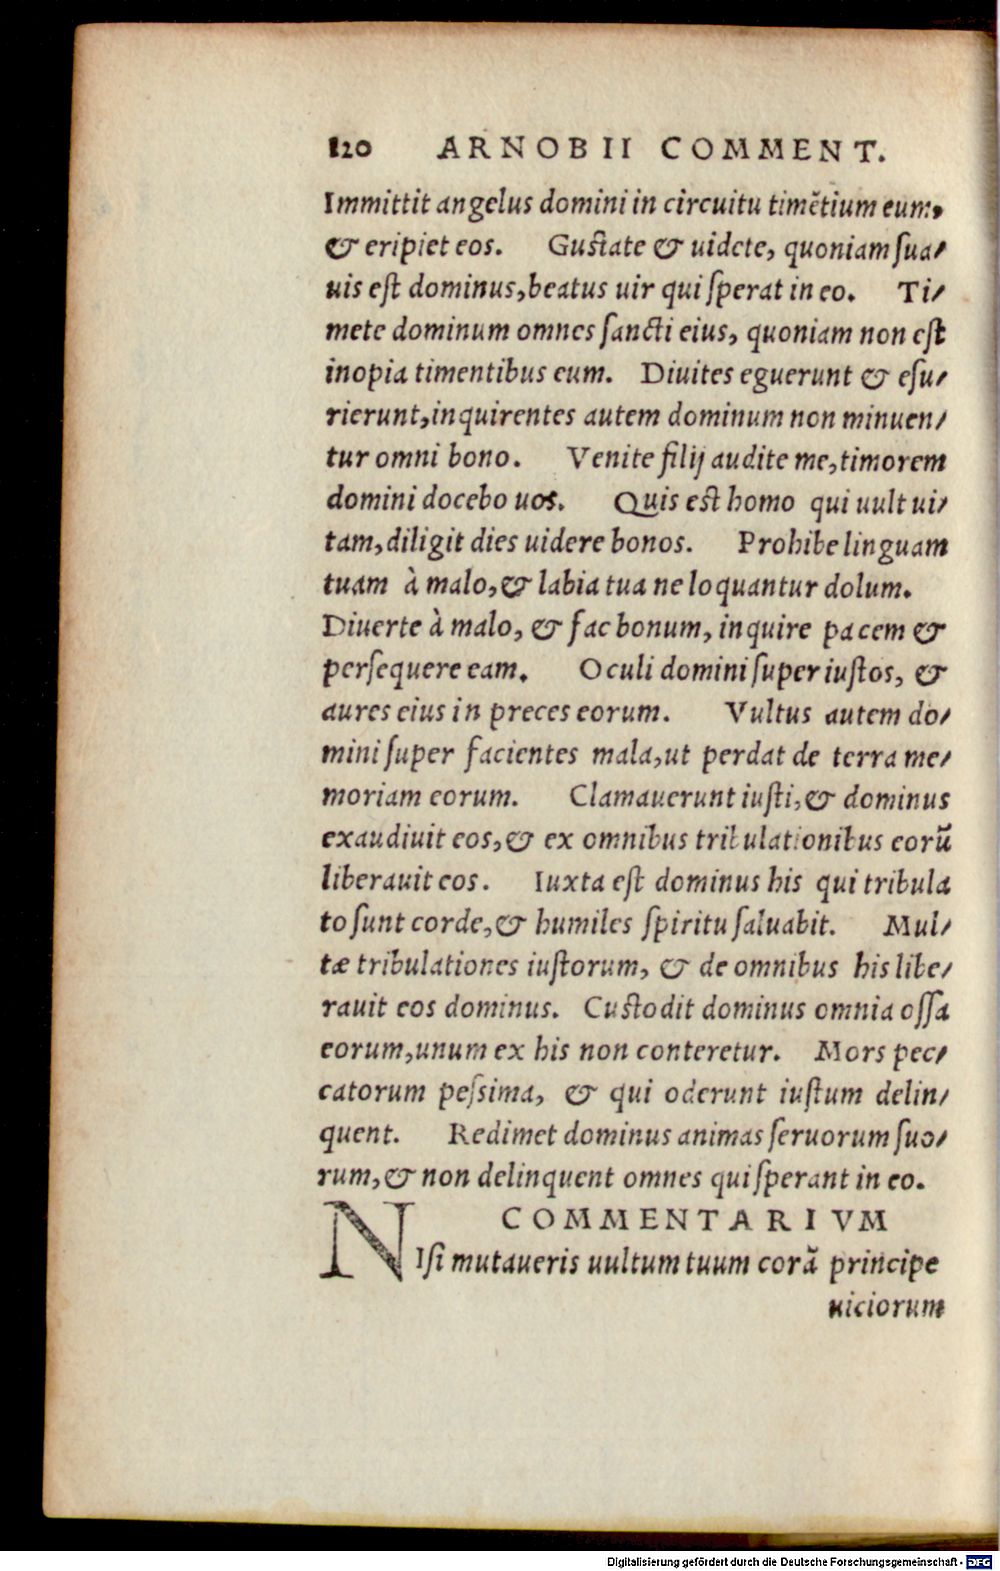 120 ARNOBII COMMENT.
Immittit angelus domini in circuitu timẽtium eum,
& eripiet eos. Gustate & uidete, quoniam sua/
uis est dominus, beatus uir qui sperat in eo. Ti/
mete dominum omnes sancti eius, quoniam non est
inopia timentibus eum. Diuites eguerunt & esu/
rierunt, inquirentes autem dominum non minuen/
tur omni bono. Venite filij audite me, timorem
domini docebo uos. Quis est homo qui uult ui/
tam, diligit dies uidere bonos. Prohibe linguam
tuam à malo, & labia tua ne loquantur dolum.
Diuerte à malo, & fac bonum, inquire pacem &
persequere eam. Oculi domini super iustos, &
aures eius in preces eorum. Vultus autem do/
mini super facientes mala, ut perdat de terra me/
moriam eorum. Clamauerunt iusti, & dominus
exaudiuit eos, & ex omnibus tribulationibus eorũ
liberauit eos. Iuxta est dominus his qui tribula
to sunt corde, & humiles spiritu saluabit. Mul/
tæ tribulationes iustorum, & de omnibus his libe/
rauit eos dominus. Custodit dominus omnia ossa
eorum, unum ex his non conteretur. Mors pec/
catorum pessima, & qui oderunt iustum delin/
quent. Redimet dominus animas seruorum suo/
rum, & non delinquent omnes qui sperant in eo.
COMMENTARIVM
NIsi mutaueris uultum tuum corã principe
uiciorum
Digitalisierung gefördert durch die Deutsche Forschungsgemeinschaft - DFG